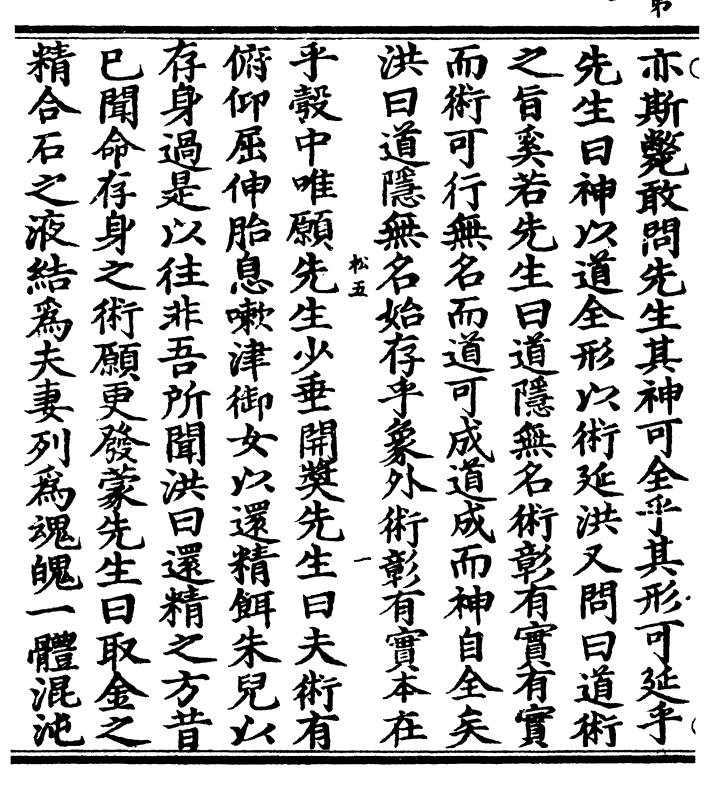 亦斯斃敢問先生其神可全乎其形可延乎
先生曰神以道全形以術延洪又問曰道術
之旨奚若先生曰道隱無名術彰有實有實
而術可行無名而道可成道成而神自全矣
洪曰道隱無名始存乎象外術彰有實本在
松五
一
乎彀中唯願先生少垂開奬先生曰夫術有
俯仰屈伸胎息嗽津御女以還精餌朱兒以
存身過是以往非吾所聞洪曰還精之方昔
已聞命存身之術願更發蒙先生曰取金之
精合石之液結爲夫妻列爲魂魄一體混沌